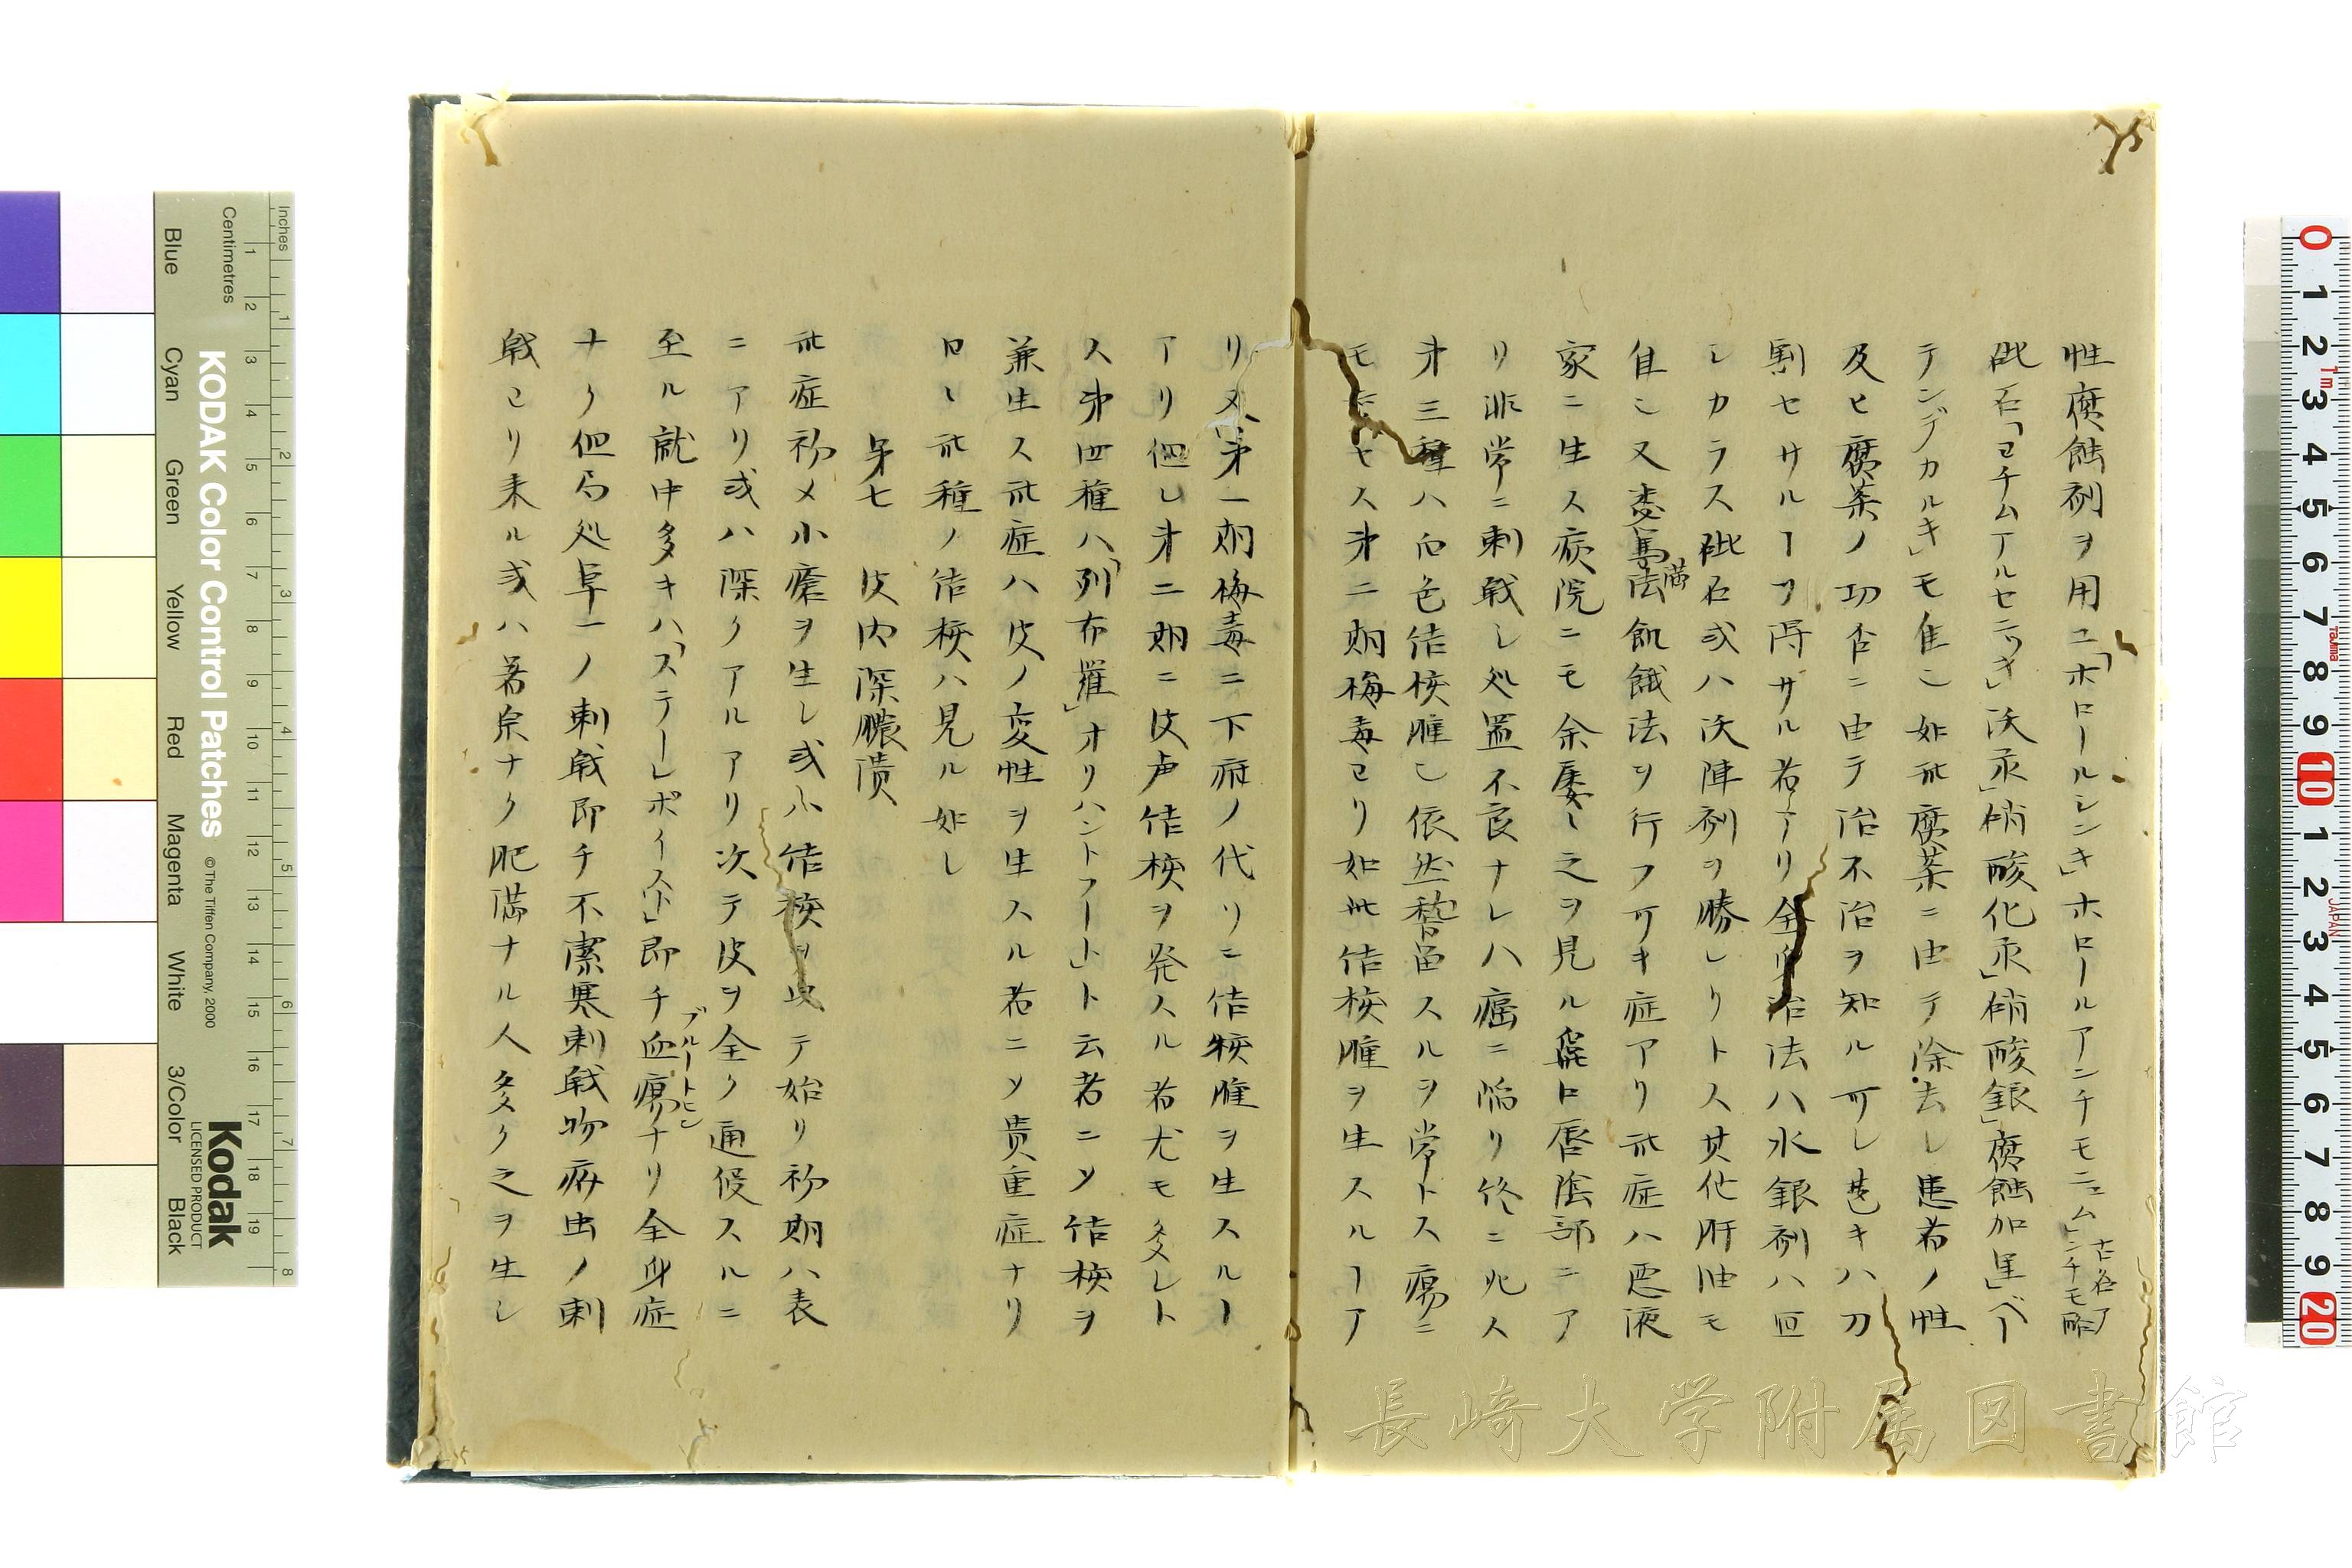 性腐蝕剤ヲ用ユ「ホロールシンキ」ホロールアンチモニュム古名アンチモ酪
砒石「コチムアルセニッキ」沃汞」硝酸化汞」硝酸銀」腐蝕加里」ベー
テンデカルキ」モ佳シ如斯腐薬ニ由テ除去し患者ノ性
及ヒ腐薬ノ功否ニ由テ治不治ヲ知ル可し若キハ刀
割セサルヿヲ得ザル者アリ全身治法ハ水銀剤ハ宜
シカラス砒石或ハ沃陣剤ヲ勝レリトス其他肝油モ
佳シ又委満法飢餓法ヲ行フ可キ症アリ斯症ハ悪液
家ニ生ス病院ニモ余屡之ヲ見ル鼻口唇陰部ニア
リ非常ニ刺戟し処置不良ナレハ癌ニ陥リ終ニ死ス
第三種ハ白色結核腫シ依然稽留スルヲ常トス瘍ニ
モ セス第二期梅毒ヨリ如此結核腫ヲ生スルヿア
リ又第一期梅毒ニ下疳ノ代リニ結核腫ヲ生スルヿ
アリ但し第二期ニ皮声結核ヲ発スル者尤モ多シト
ス第四種ハ「列布羅」オリハントフート」ト云者ニメ結核ヲ
兼生ス斯症ハ皮ノ変性ヲ生スル者ニメ貴重症ナリ
但し斯種ノ結核ハ見ル如し
第七 皮内深膿潰
斯症初メ小瘡ヲ生し或小結核ヲ以テ始リ初期ハ表
ニアリ或ハ深クアルアリ次テ皮ヲ全ク通候スルニ
至ル就中多キハ「ステーレポイスト」即チ血瘍ブルートヒンナリ全身症
ナク但局処卑一ノ刺戟即チ不潔寒刺戟物病虫ノ刺
戟ヨリ来ル或ハ著宗ナク肥満ナル人多ク之ヲ生し
長崎大学附属図書館
KODAK Color Control Patches
© The Tiffen Company, 2000
Kodak
LICENSED PRODUCT
Inches
Centimetres
Blue Cyan Green Yellow Red Magenta White 3/Color Black